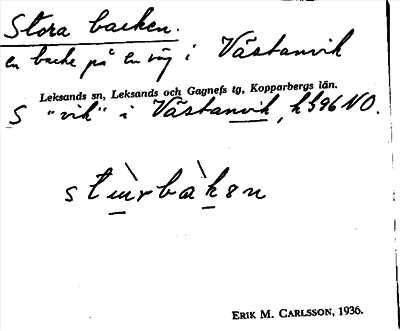 Stora backen.
en backe på en väg i Västanvik
Leksands sn, Leksands och Gagnefs tg, Kopparbergs län.
S "vik" i Västanvik, h 596 NO.
ERIK M. CARLSSON, 1936.